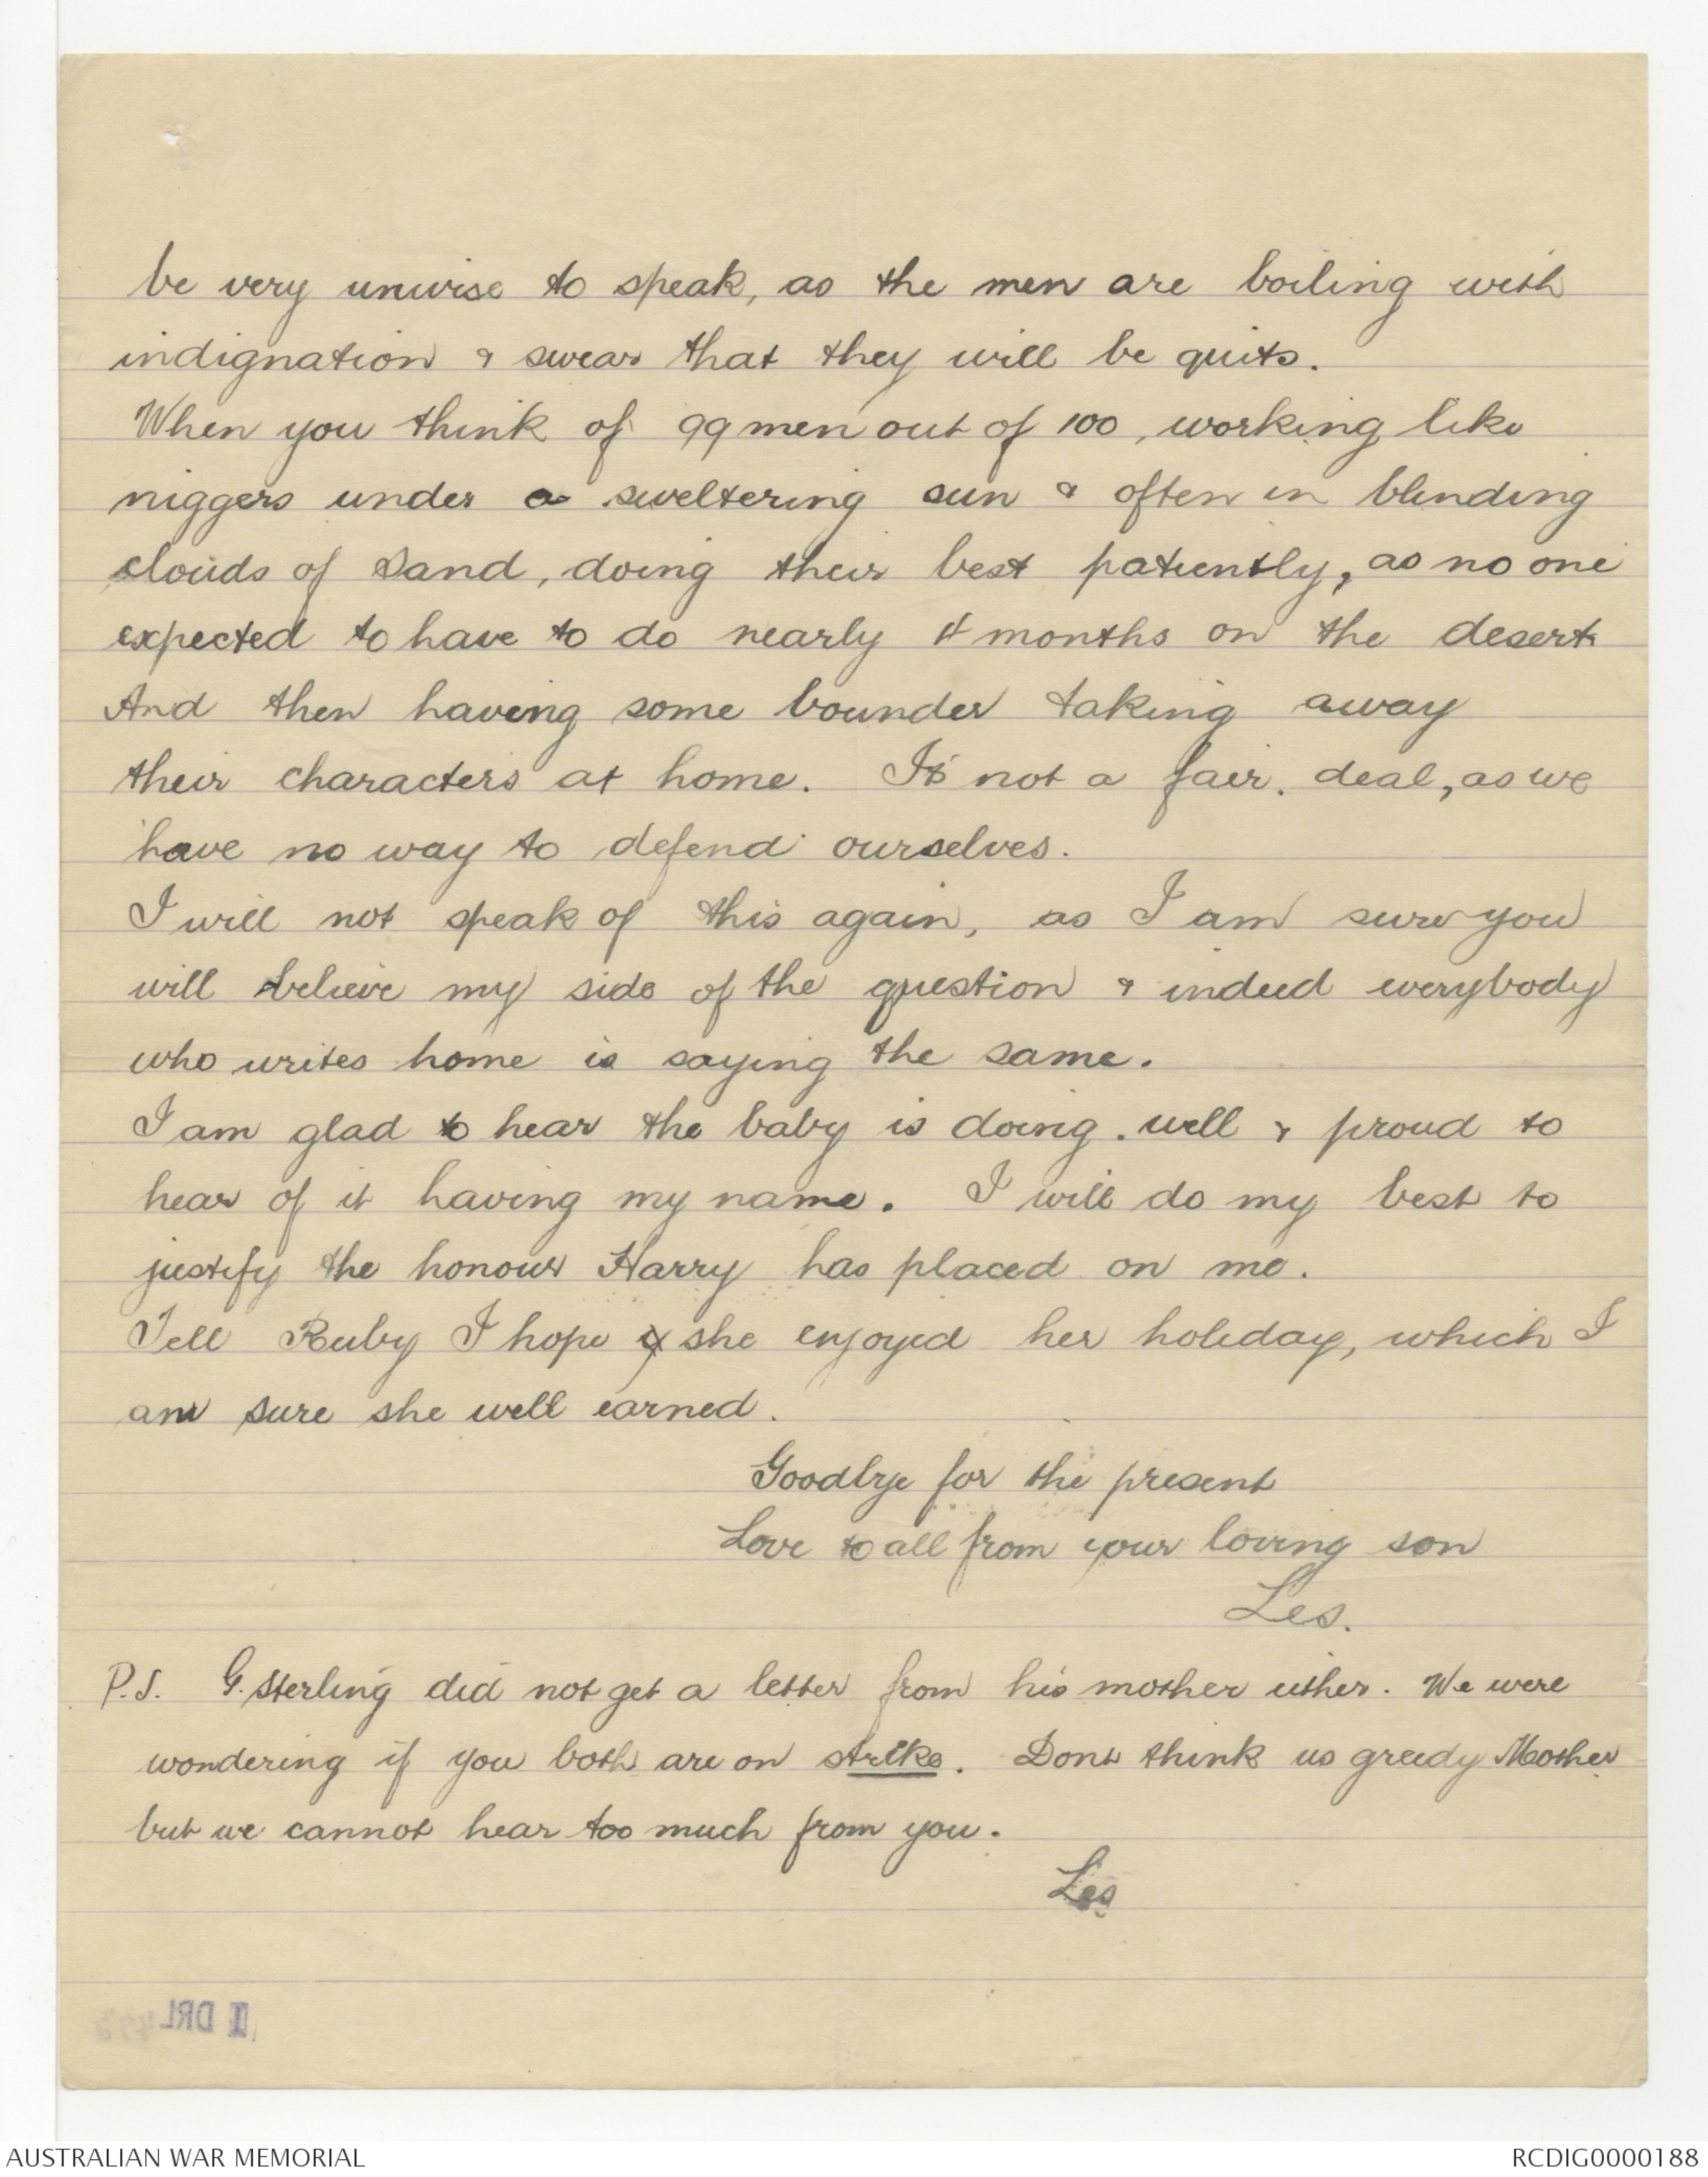 be very unwise to speak, as the men are boiling with
indignation & swear that they will be quits.
When you think of 99 men out of 100, working like
niggers under a sweltering sun & often in blinding
clouds of sand, doing their best patiently, as no one
expected to have to do nearly 4 months on the desert
And then having some bounder taking away
their characters at home. Its not a fair. deal, as we
have no way to defend ourselves.
I will not speak of this again, as I am sure you
will believe my side of the question & indeed everybody
who writes home is saying the same.
I am glad to hear the baby is doing. well & proud to
hear of it having my name. I will do my best to
justify the honour Harry has placed on me.
Tell Ruby I hope she enjoyed her holiday, which I
am sure she well earned.
Goodbye for the present
Love to all from your loving son
Les.
P.S. G. Sterling did not get a letter from his mother either. We were
wondering if you both are on strike. Dont think us greedy Mother
but we cannot hear too much from you.
Les
DRL
AUSTRALIAN WAR MEMORIAL
RCDIG0000188